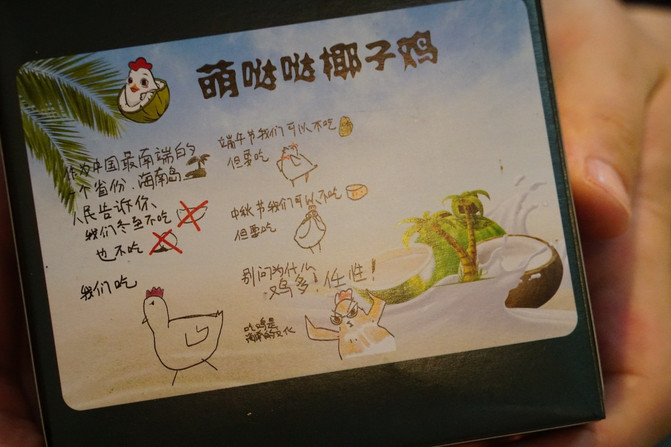 萌哒哒椰子鸡
作为中国最南端的
一个省份,海南岛
人民告诉你、
我们冬至不吃
也不吃
我们吃
端午节我们可以不吃
但要吃
中秋节我们可以不吃
但要吃
别问为什么
鸡多!任性!
吃鸡是
海南的文化